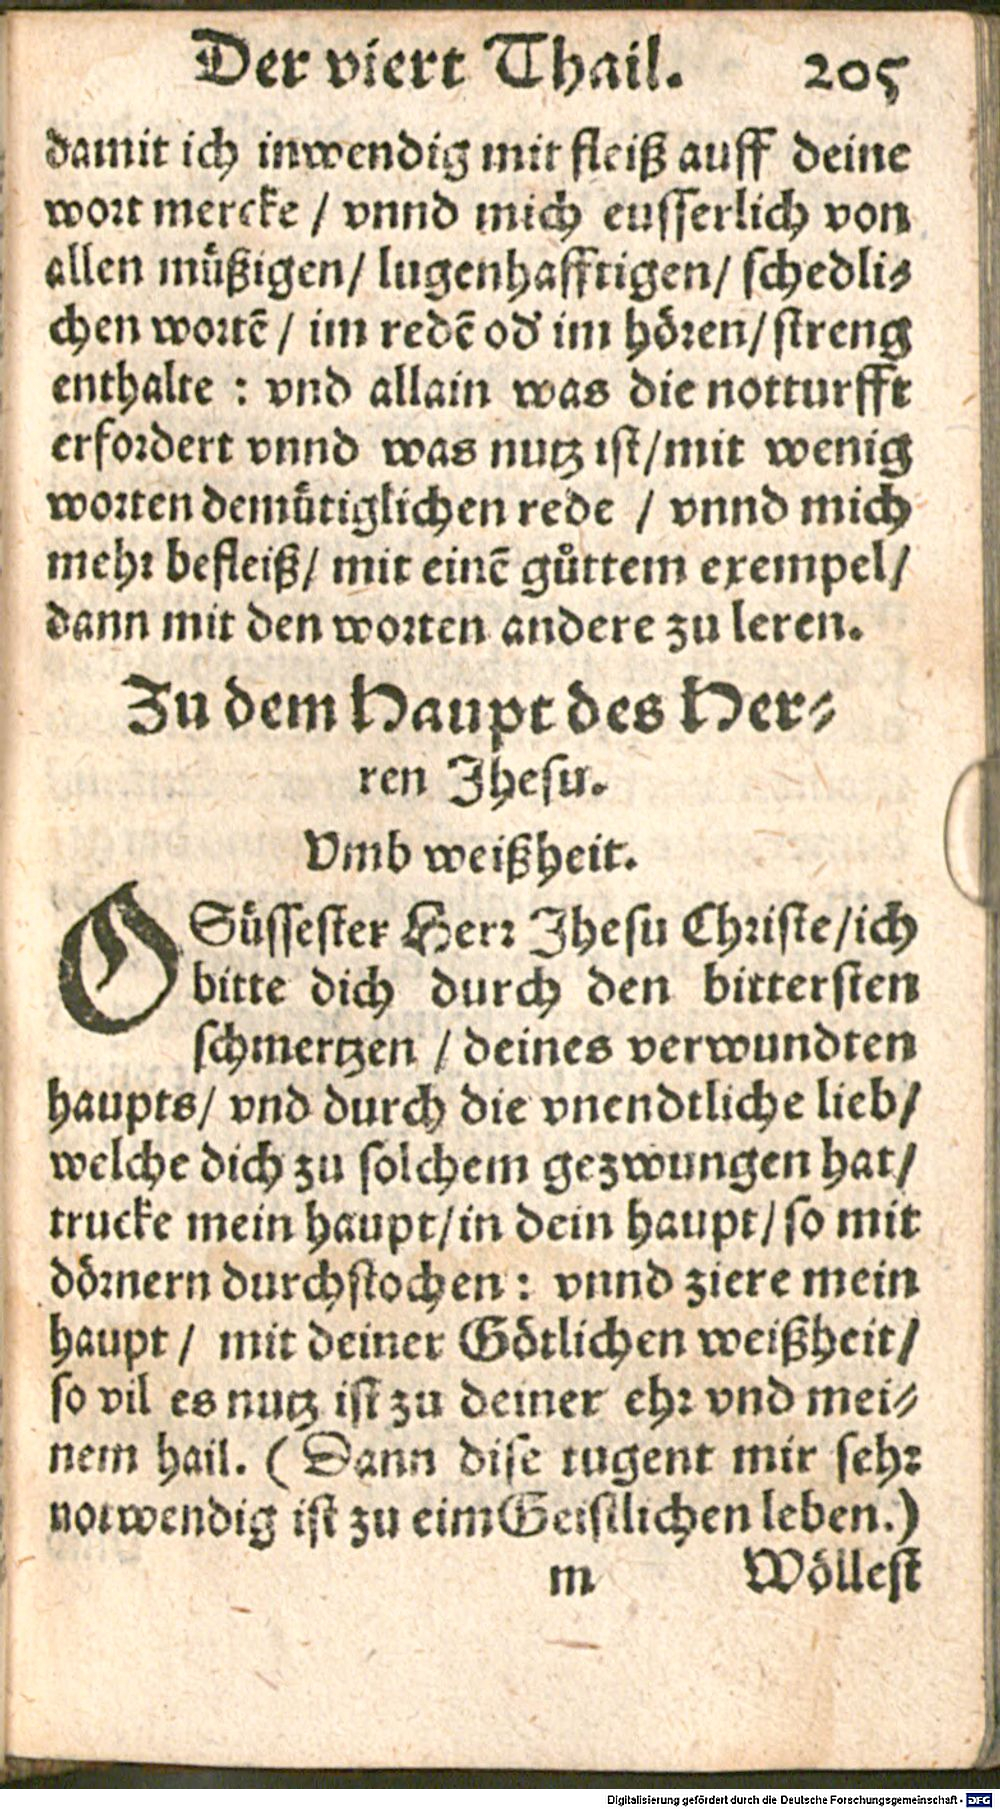 Der viert Thail. 205
damit ich inwendig mit fleiß auff deine
wort mercke / vnnd mich eusserlich von
allen muͤßigen/ lugenhafftigen/ schedli⸗
chen wortē / im redē od' im hoͤren/ streng
enthalte : vnd allain was die notturfft
erfordert vnnd was nutz ist/mit wenig
worten demuͤtigklichen rede / vnnd mich
mehr befleiß/ mit einē guͦttem exempel/
dann mit den worten andere zu leren.
Zu dem Haupt des Her⸗
ren Jhesu.
Vmb weißheit.
O Suͤssester Herr Jhesu Christe/ich
bitte dich durch den bittersten
schmertzen / deines verwundten
haupts/ vnd durch die vnendtliche lieb/
welche dich zu solchem gezwungen hat/
trucke mein haupt/in dein haupt/ so mit
doͤrnern durchstochen : vnnd ziere mein
haupt / mit deiner Goͤtlichen weißheit/
so vil es nutz ist zu deiner ehr vnd mei⸗
nem hail. ( Dann dise tugent mir sehr
notwendig ist zu eim Geistlichen leben.)
m Woͤllest
Digitalisierung gefördert durch die Deutsche Forschungsgemeinschaft - DFG